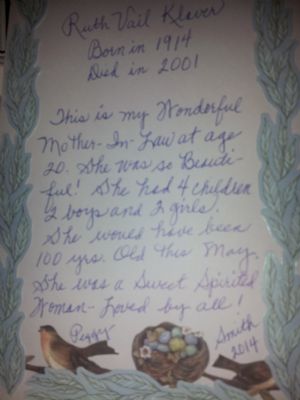 Ruth Vail Klaver
Born in 1914
Died in 2001
This is my Wonderful
Mother-In-Law at age
20. She was so Beauti-
ful! She had 4 children
2 boys and 2 girls.
She would have been
100 yrs. Old this May.
She was a Sweet Spirited
Woman-Loved by all!
Peggy Smith
2014